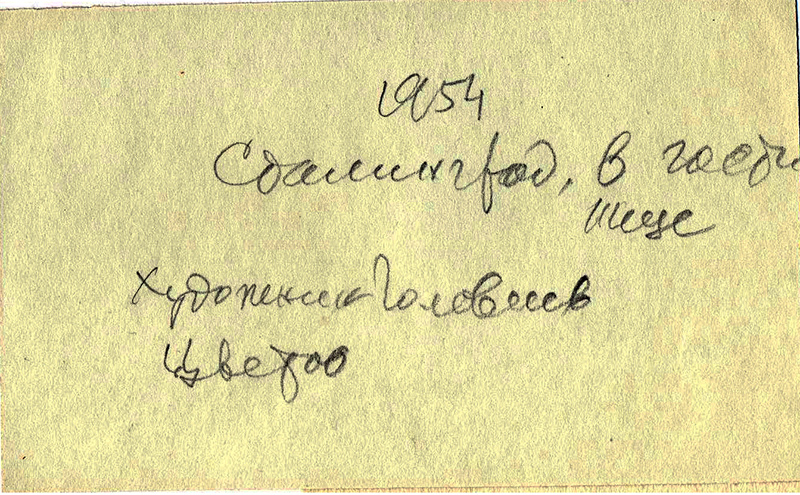 1954
Сталинград, в гости
нице
художник Головин
Цветов